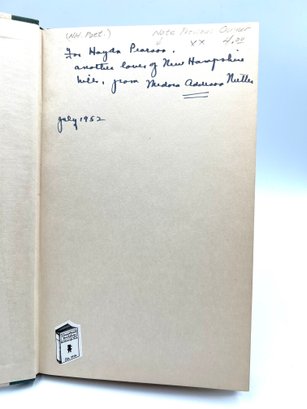 (NH. Poet.) Note Previous Owner
xx 4.00
For Haydn Pearson,
another lover of New Hampshire
hills, from Medora Addison Nutter
July 1952